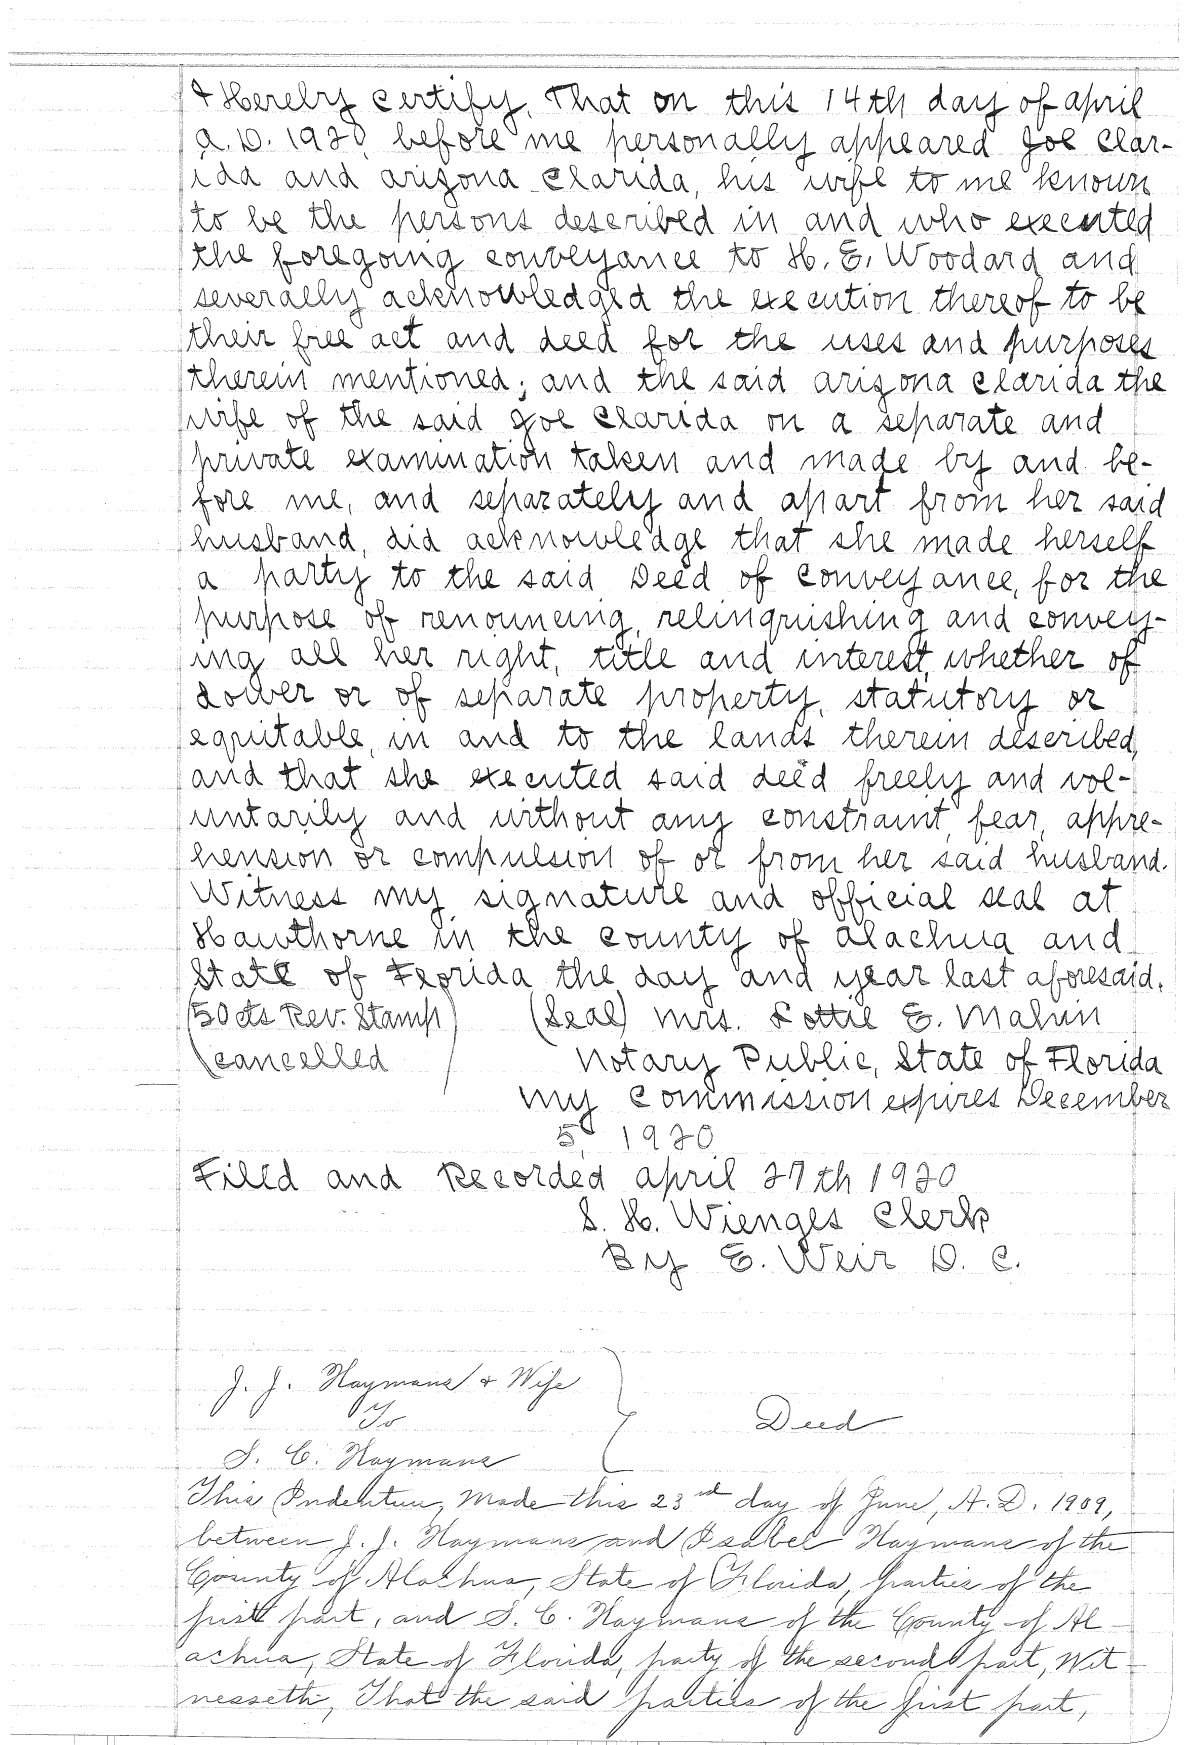 I Hereby certify, That on this 14th day of april
a. D. 1920, before me personally appeared Joe Clar-
ida and arizona Clarida, his wife to me known
to be the persons described in and who executed
the foregoing conveyance to H. E. Woodard and
severally acknowledged the execution thereof to be
their free act and deed for the uses and purposes
therein mentioned; and the said arizona Clarida the
wife of the said Joe Clarida on a separate and
private examination taken and made by and be-
fore me, and separately and apart from her said
husband, did acknowledge that she made herself
a party to the said Deed of Conveyance, for the
purpose of renouncing, relinquishing and convey-
ing all her right, title and interest, whether of
dower or of separate property, statutory or
equitable, in and to the lands therein described,
and that she executed said deed freely and vol-
untarily and without any constraint, fear, appre-
hension or compulsion of or from her said husband.
Witness my signature and official seal at
Hawthorne in the County of Alachua and
State of Florida the day and year last aforesaid.
(50 cts Rev. Stamp) (Seal) Mrs. Lottie E. Mahin
(cancelled Notary Public, State of Florida
My Commission expires December
5, 1920
Filed and Recorded april 27th 1920
S. H. Wienges Clerk
By E. Weir D. C.
J. J. Haymans & Wife
To
Deed
S. C. Haymans
This Indenture, Made this 23rd day of June, A. D. 1909,
between J. J. Haymans and Isabel Haymans of the
County of Alachua, State of Florida, parties of the
first part, and S. C. Haymans of the County of Al-
achua, State of Florida, party of the second part, Wit-
nesseth, That the said parties of the first part,